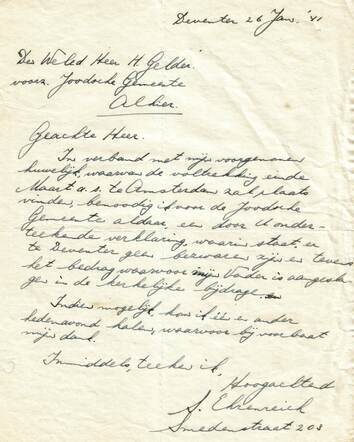 Deventer 26 Jan. '41
Den Weled Heer H. Gelder
voorz. Joodsche Gemeente
Alhier.
Geachte Heer.
In verband met mijn voorgenomen
huwelijk, waarvan de voltrekking einde
Maart a.s. te Amsterdam zal plaats
vinden, benoodig ik voor de Joodsche
Gemeente aldaar een door U onder-
teekende verklaring, waarin staat er
te Deventer geen bezwaren zijn en tevens
het bedrag waarvoor mijn Vader is aangesla-
gen in de kerkelijke bijdrage.
Indien mogelijk, kom ik één en ander
hedenavond halen, waarvoor bij voorbaat
mijn dank.
Inmiddels teeken ik,
Hoogachtend
S. Ehrenreich
Smedenstraat 203